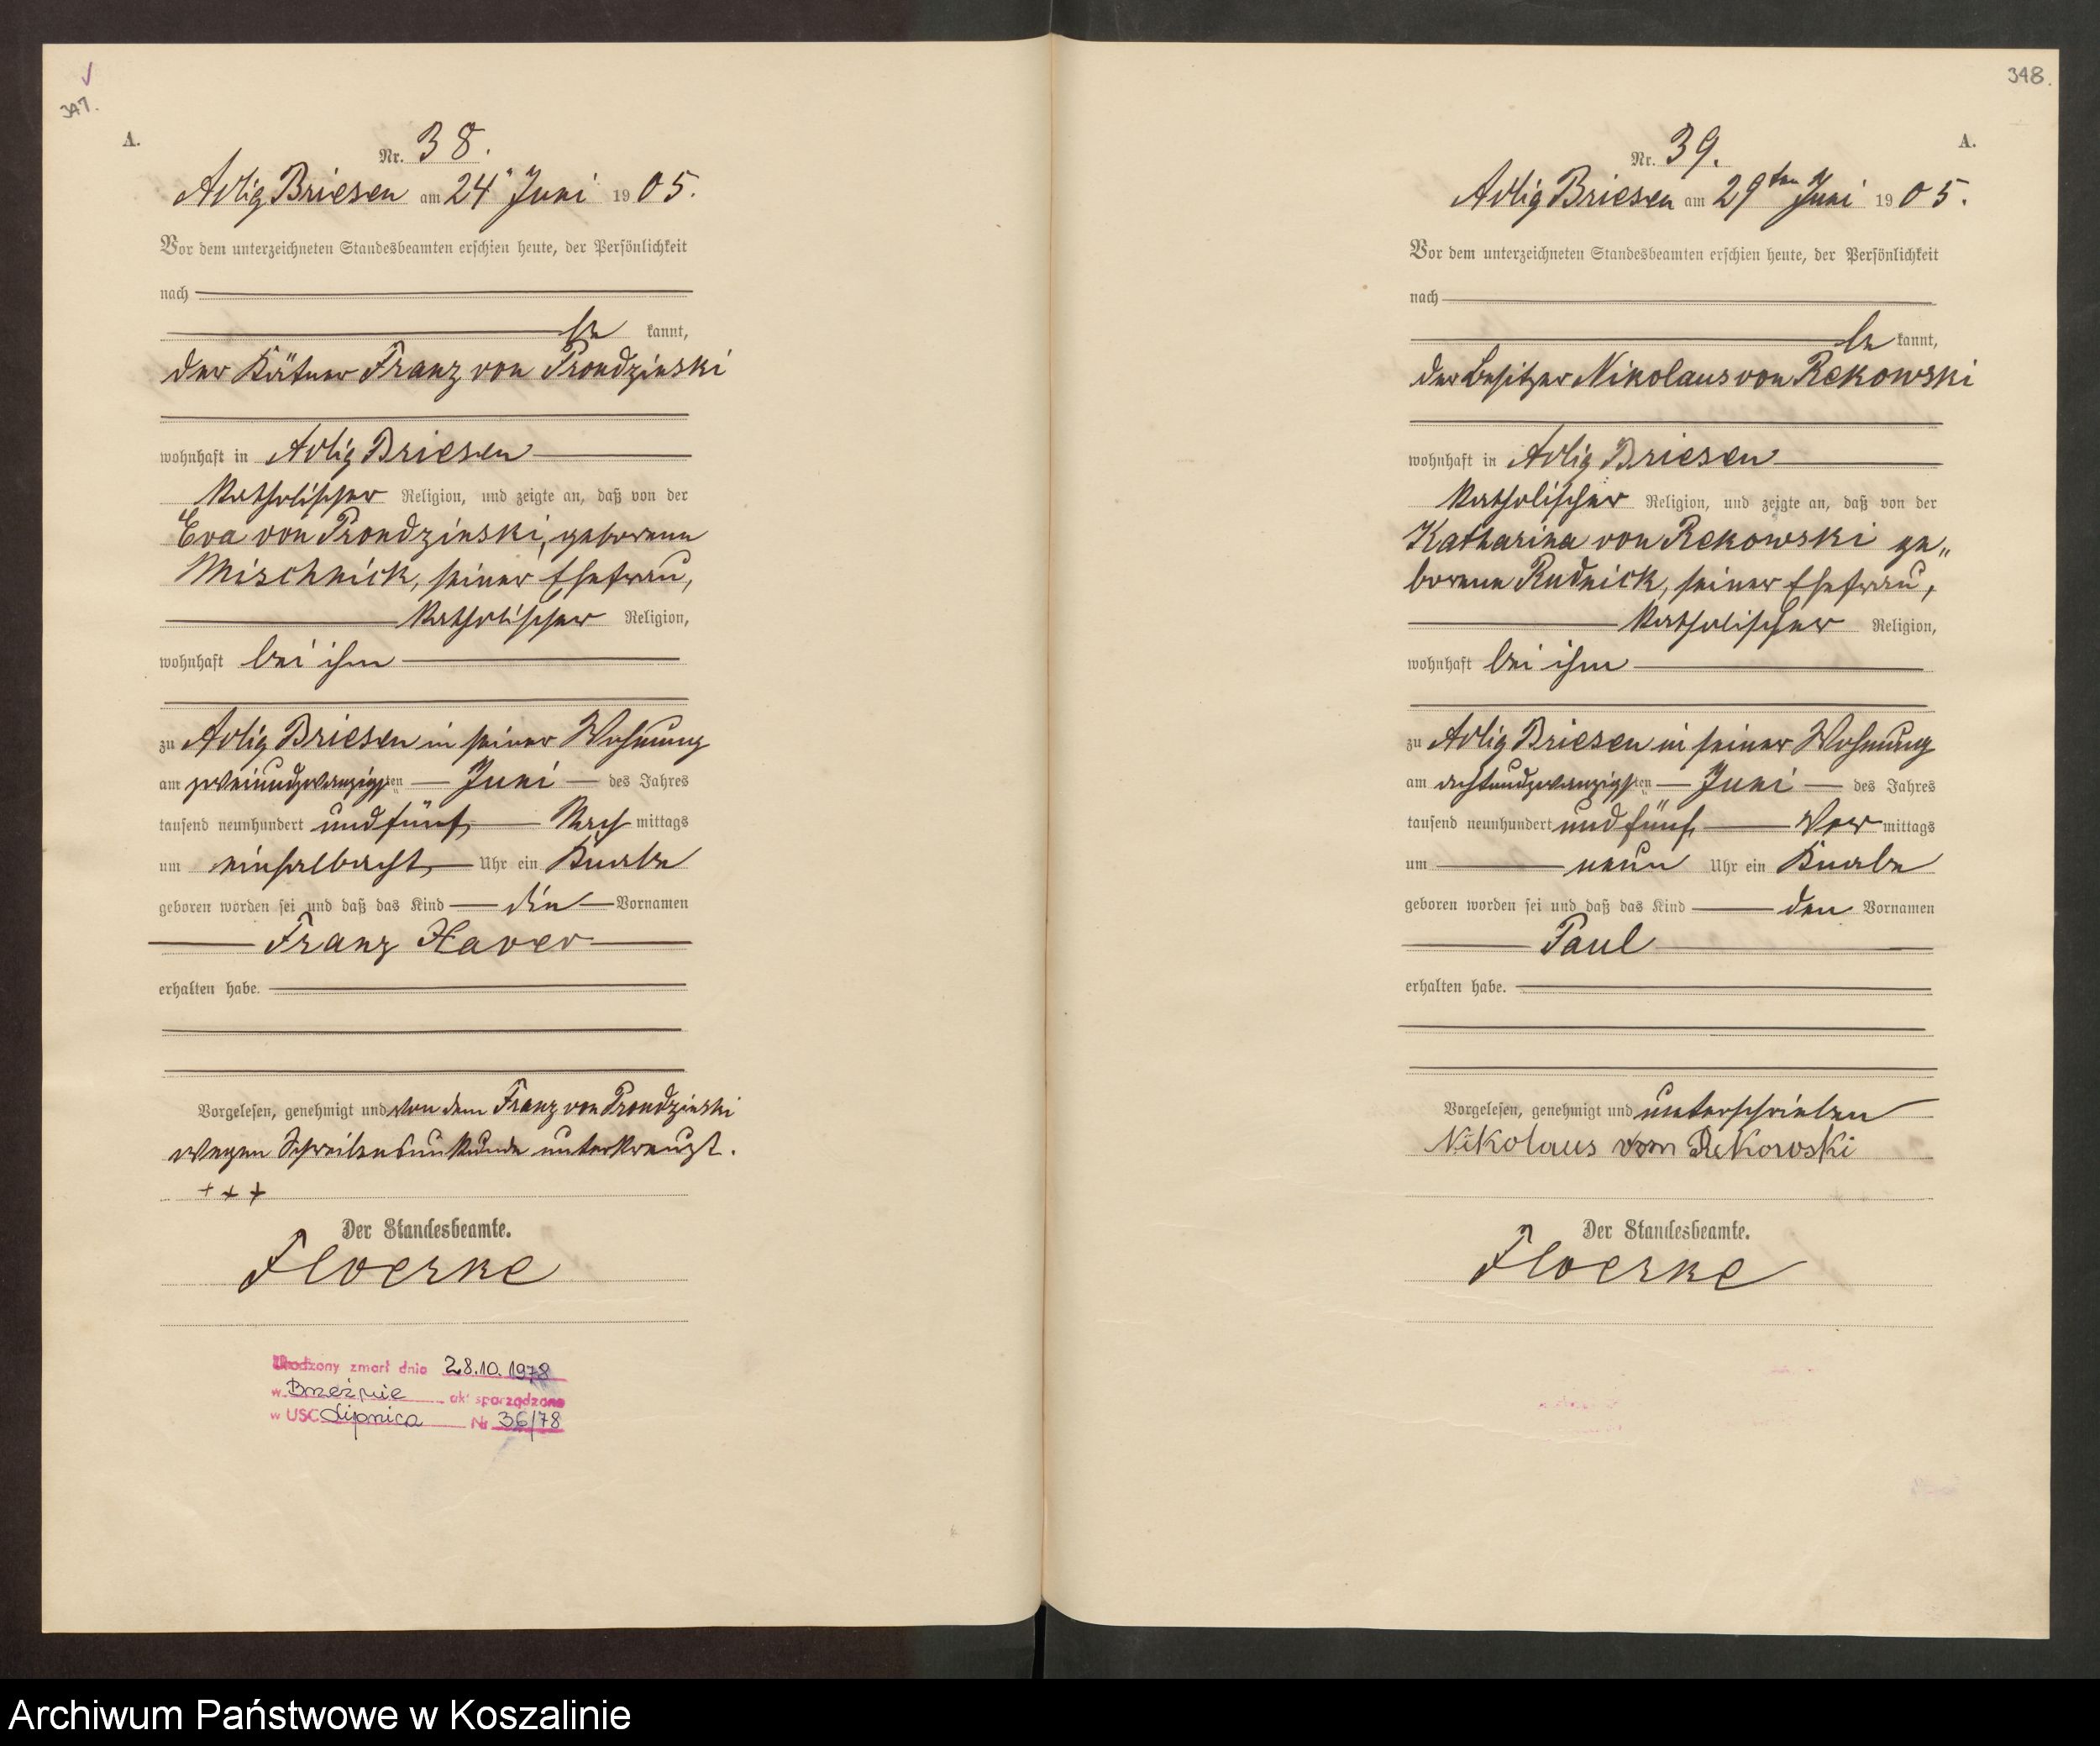 347.
A.
Nr. 38.
Adlig Briesen am 24. Juni 1905.
Vor dem unterzeichneten Standesbeamten erschien heute, der Persönlichkeit
nach
be kannt,
der Kätner Franz von Prondzinski
wohnhaft in Adlig Briesen
katholischer Religion, und zeigte an, daß von der
Eva von Prondzinski, geborene
Mischnick, seiner Ehefrau,
katholischer Religion,
wohnhaft bei ihm
zu Adlig Briesen in seiner Wohnung
am zweiundzwanzigsten Juni des Jahres
tausend neunhundert und fünf, Nach mittags
um einhalbacht Uhr ein Knabe
geboren worden sei und daß das Kind die Vornamen
Franz Xaver
erhalten habe.
Vorgelesen, genehmigt und von dem Franz von Prondzinski
wegen Schreibensunkunde unterkreuzt.
+++
Der Standesbeamte.
Floerke
Urodzony zmarł dnia 28.10.1978
w Brzeźnie akt sporządzono
w USC Lipnica Nr 36/78
348.
A.
Nr. 39.
Adlig Briesen am 29ten Juni 1905.
Vor dem unterzeichneten Standesbeamten erschien heute, der Persönlichkeit
nach
be kannt,
der Besitzer Nikolaus von Rekowski
wohnhaft in Adlig Briesen
katholischer Religion, und zeigte an, daß von der
Katharina von Rekowski ge„
borene Rudnick, seiner Ehefrau,
katholischer Religion,
wohnhaft bei ihm
zu Adlig Briesen in seiner Wohnung
am achtundzwanzigsten Juni des Jahres
tausend neunhundert und fünf, Vor mittags
um neun Uhr ein Knabe
geboren worden sei und daß das Kind den Vornamen
Paul
erhalten habe.
Vorgelesen, genehmigt und unterschrieben
Nikolaus von Rekowski
Der Standesbeamte.
Floerke
Archiwum Państwowe w Koszalinie